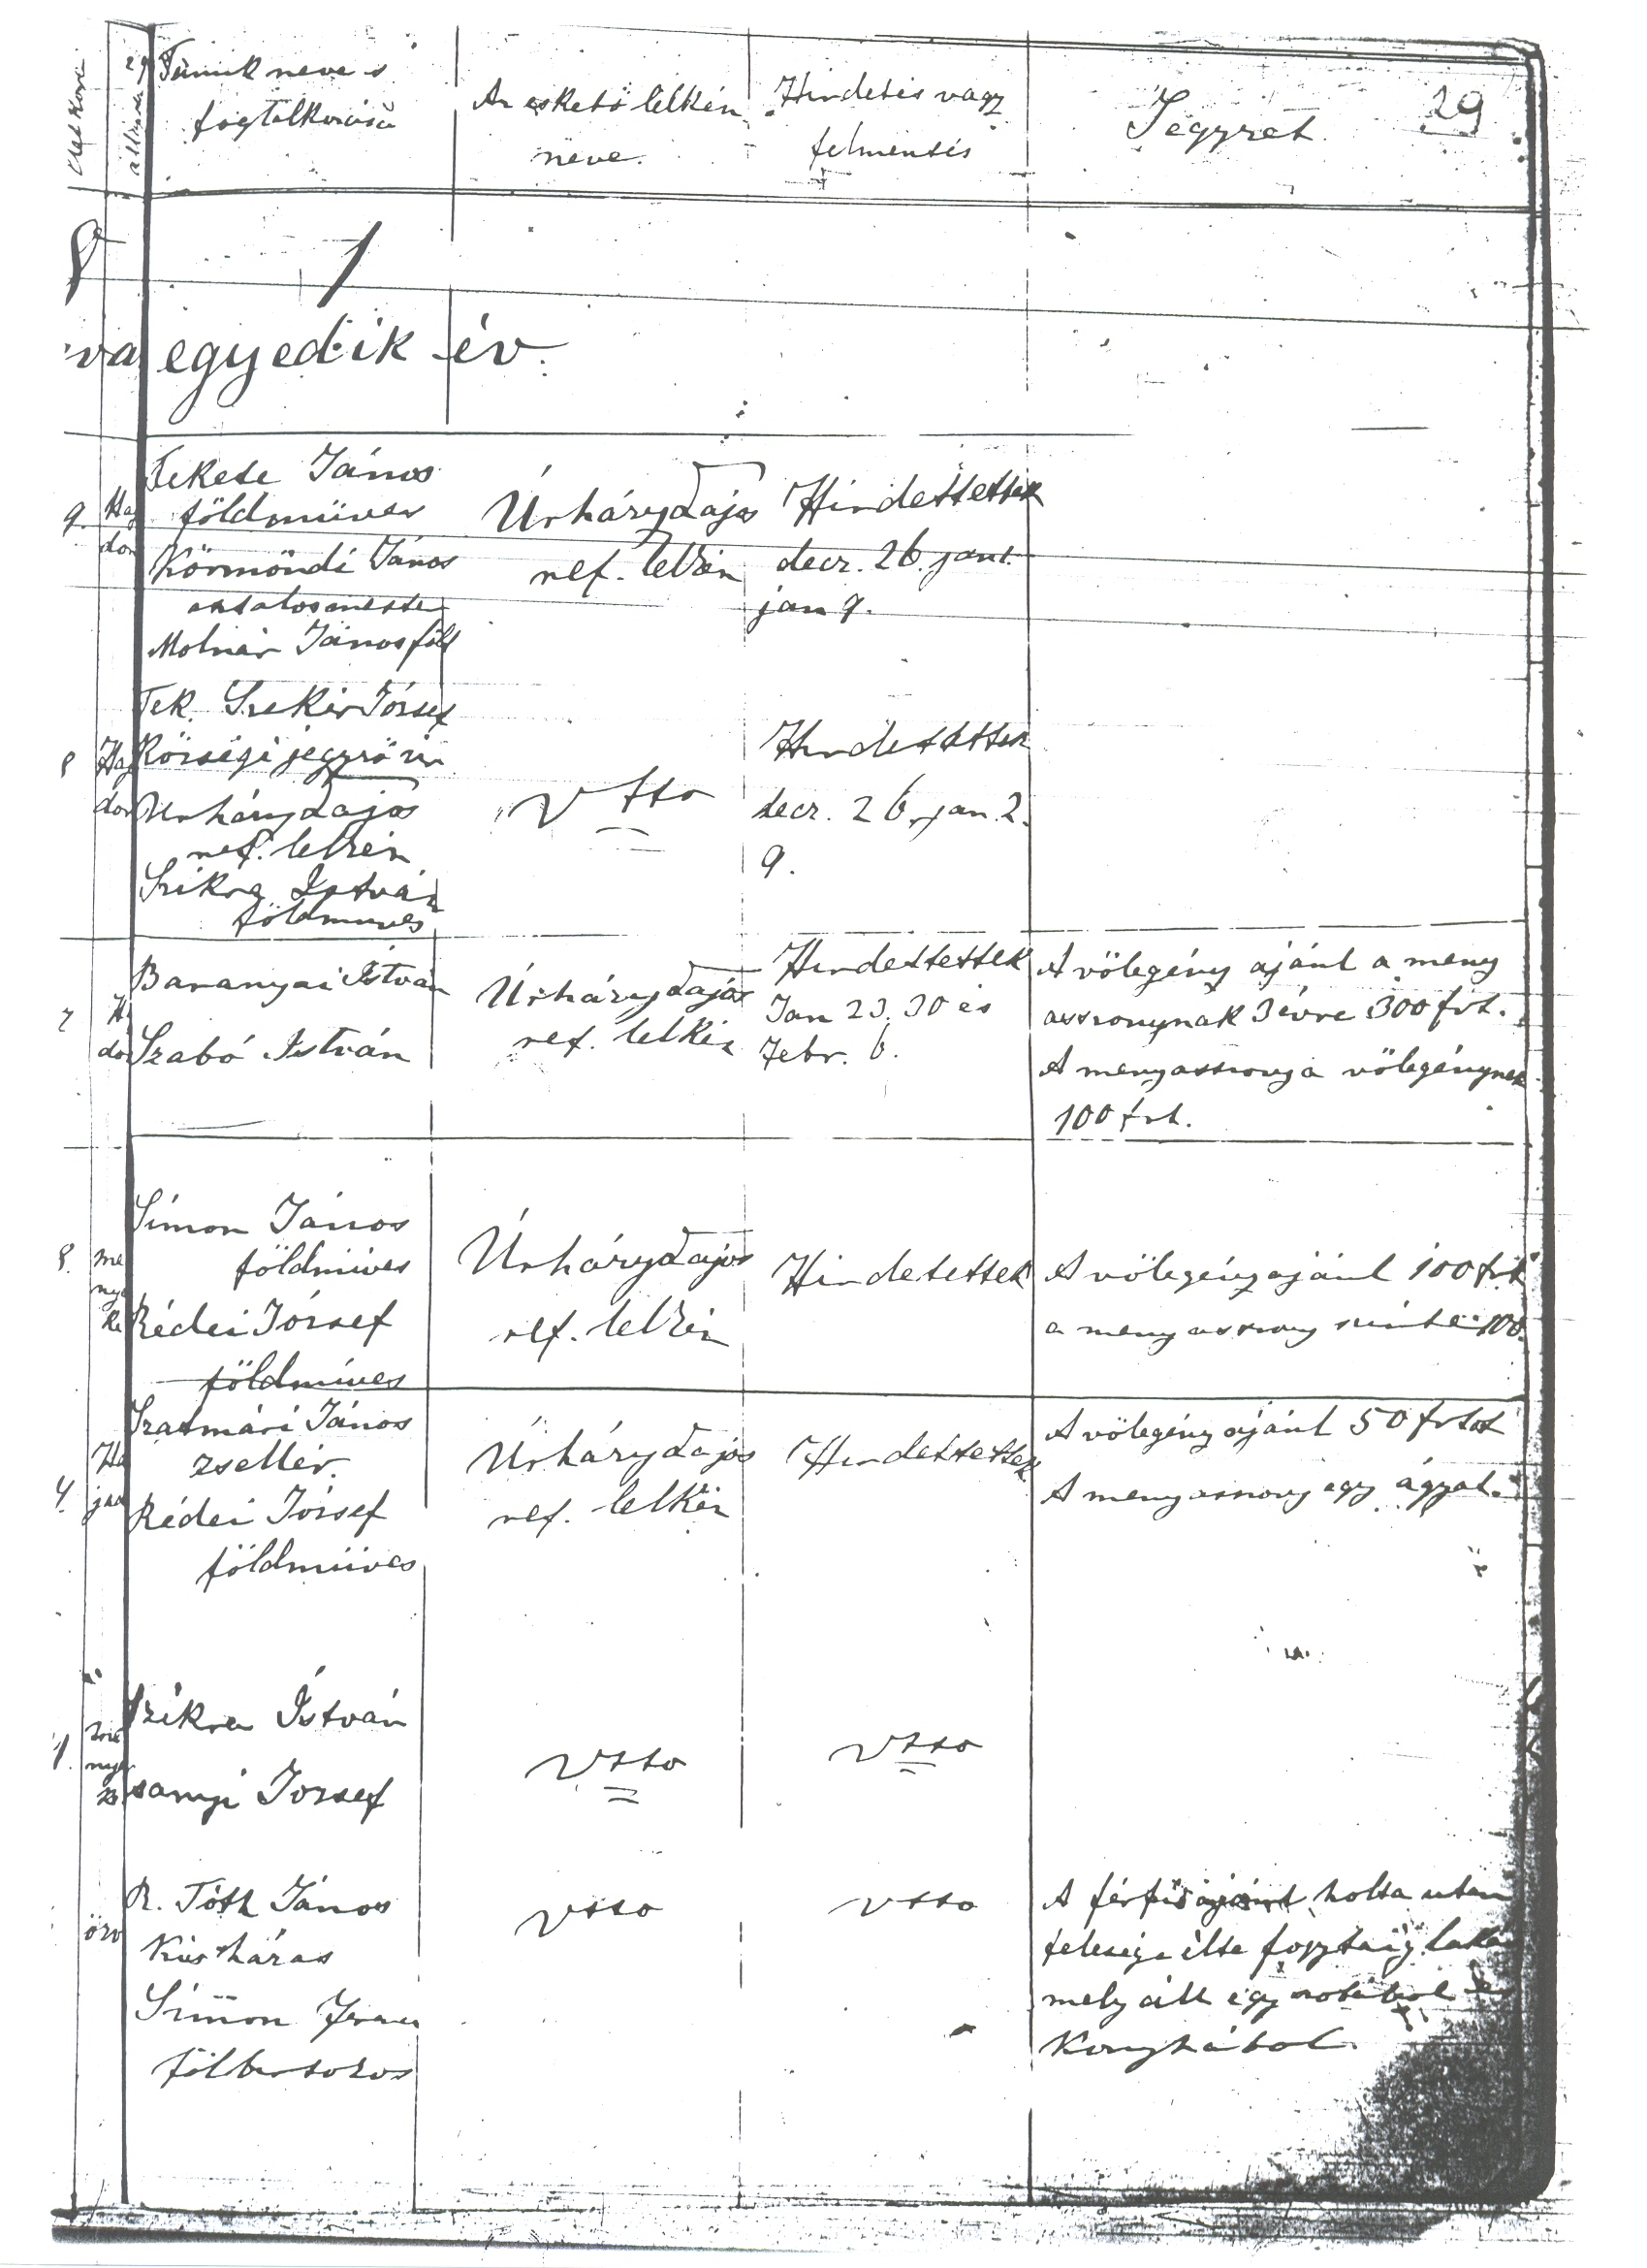 Életkora
Tanuk neve s
foglalkozása
Az esketö lelkén
neve.
Hirdetés vagy
felmentés
Jegyzet.
29
1
va egyedik év.
9.
Haj
don
Fekete János
földmüves
Körmöndi János
asztalosmester
Molnár János föld
Úrháry Lajos
ref. lelkén
Hirdettettek
decz. 26. jan 1.
jan 9.
Haj
don
Tek. Szekér József
Községi jegyzö úr
Urháry Lajos
ref. lelkén
Szikra István
földmuves
Vtto
Hirdettettek
decz. 26. jan. 2.
9.
Baranyai István
Szabó István
Úrháry Lajos
ref. lelkén
Hirdettettek
Jan 23. 30 és
Febr. 6.
A völegény ajánl a meny
asszonynak 3 évre 300 frt.
A menyasszony a völegénynek
100 frt.
8.
me
nye
ke
Simon János
földmives
Rédei József
földmives
Úrháry Lajos
ref. lelkén
Hirdettettek
A völegény ajánl 100 frt
a menyasszony szinte 100.
4.
Szatmári János
zsellér.
Rédei József
földmüves
Úrháry Lajos
ref. lelkén
Hirdettettek
A völegény ajánl 50 frtot
A menyasszony egy ágyat.
Szikra István
sanyi József
Vtto
Vtto
özv
R. Tóth János
Kisházas
Simon
Vtto
Vtto
A férfi holta utan
felesége élte fogytaig
mely áll egy
Konyhábol.